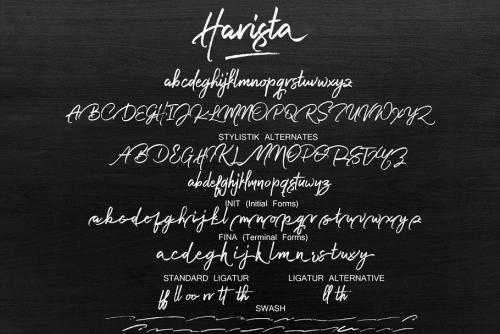 Harista
abcdeghijklmnopqrstuvwxyz
ABCDEFGHIJKLMNOPQRSTUVWXYZ
STYLISTIK ALTERNATES
ABDEGHIKLMNOPQRSTXYZ
abdefghjklmnopqstuwyz
INIT (Initial Forms)
abcdefghijklmnopqrstuvwxyz
FINA (Terminal Forms)
acdeghijklmnrstuxy
STANDARD LIGATUR LIGATUR ALTERNATIVE
ff ll oo rr tt th ll th
SWASH